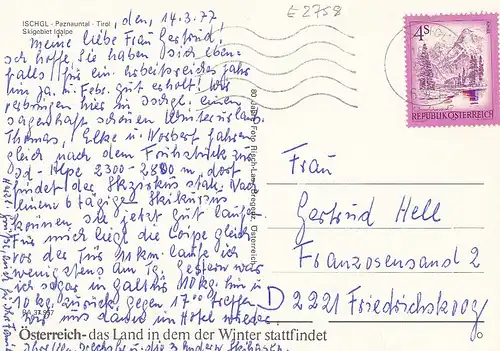 ISCHGL - Paznauntal - Tirol
Skigebiet Idalpe
E 2758
den, 14.3.77
Meine liebe Frau Gertrud!
Ich hoffe, Sie haben sich eben-
falls für ein arbeitsreiches Jahr
im Ja. u. Febr. gut erholt. Wir
verbringen hier in Ischgl einen
sagenhaft schönen Winterurlaub.
Thomas, Elke u. Norbert fahren
gleich nach dem Frühstück zur
Id-Alpe 2300-2800 m, dort
findet der Skizirkus statt. Nach
einem 6 tägigen Skikurs
können sie jetzt gut laufen.
Für mich liegt die Loipe gleich
vor der Tür 11 km laufe ich
wenigstens am Tg. Gestern war
ich sogar in Galtür 10 kg. hin u.
10 kg. zurück. Gegen 17 00 treffen
wir uns dann im Hotel wieder
RA 37 937
80 Jahre Foto Risch-Lau, Bregenz, Österreich
4 S
REPUBLIK ÖSTERREICH
Frau
Gertrud Hell
Franzosensand 2
D 2221 Friedrichskoog
Österreich - das Land in dem der Winter stattfindet